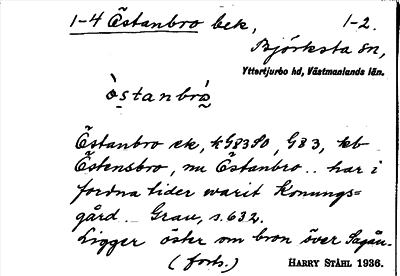 1-4 Östanbro bek,
1-2.
Björksta sn,
Yttertjurbo hd, Västmanlands län.
òstanbró
Östanbro ek, kG83SO, G83, kb
Östensbro, nu Östanbro.. har i
fordna tider warit Konungs=
gård. Grau, s. 632.
Ligger öster om bron över Sagån.
(forts.)
HARRY STÅHL 1936.